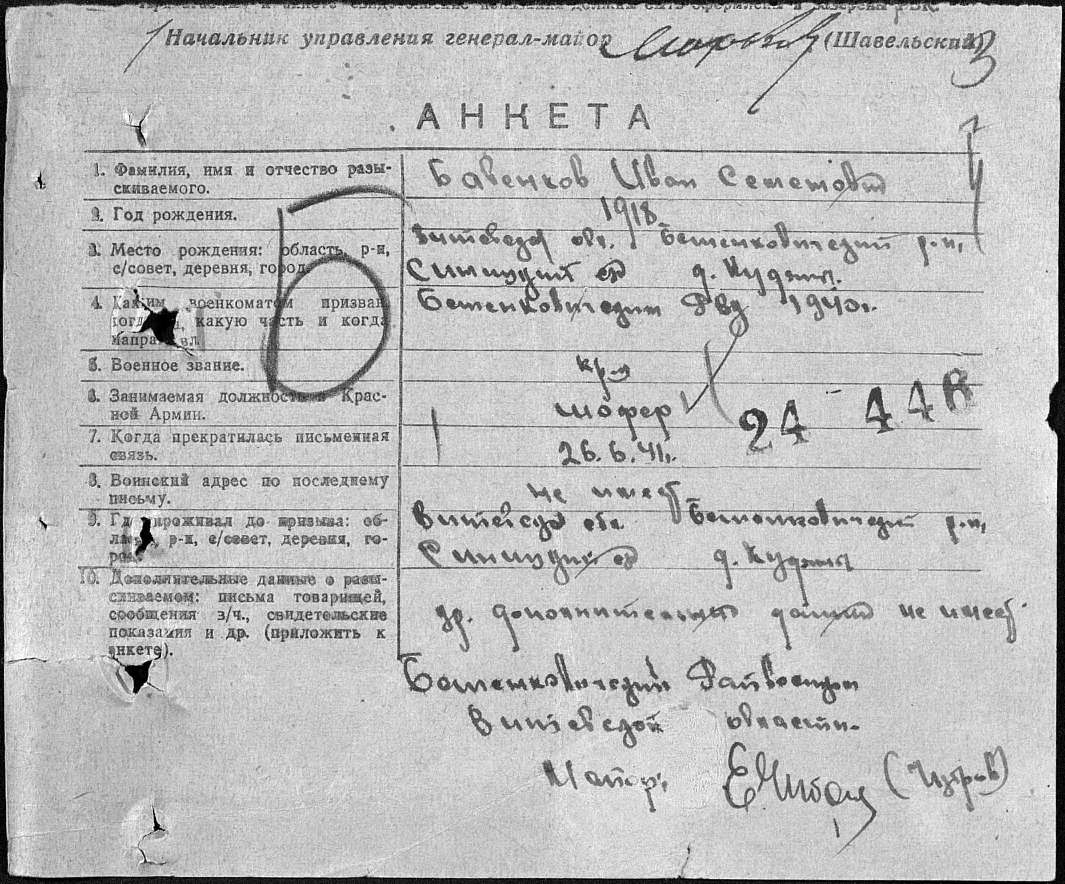 Начальник управления генерал-майор (Шавельский)
3
АНКЕТА
1. Фамилия, имя и отчество разы-
скиваемого.
Бавенков Иван Семенович
2. Год рождения.
1918
3. Место рождения: область, р-н,
с/совет, деревня, город
Витебская обл. Бешенковичский р-н,
д.
4. Каким военкоматом призван,
какую часть и когда
Бешенковичским РВК 1940г.
5. Военное звание.
кр-ц
6. Занимаемая должность в Крас-
ной Армии.
шофер
24 44
7. Когда прекратилась письменная
связь.
26.6.41г.
8. Воинский адрес по последнему
письму.
не имеет
9. Где проживал до призыва: об-
ласть, р-н, с/совет, деревня, го-
род
Витебская обл. Бешенковичский р-н,
д.
10. Дополнительные данные о разы-
скиваемом: письма товарищей,
сообщения в/ч., свидетельские
показания и др. (приложить к
анкете).
др. дополнительных данных не имеет
Бешенковичский Райвоенком
Витебской области.
Майор